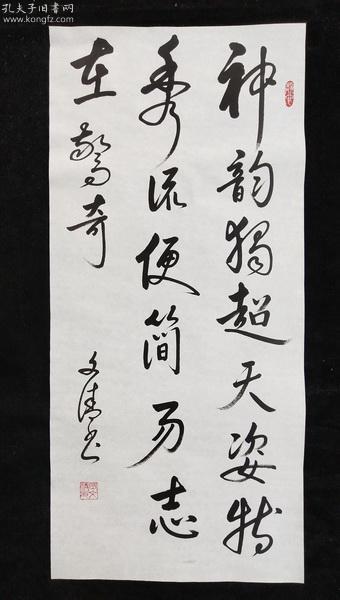 孔夫子旧书网
www.kongfz.com
神韵独超天姿特
秀流便简易志
在惊奇
文清书